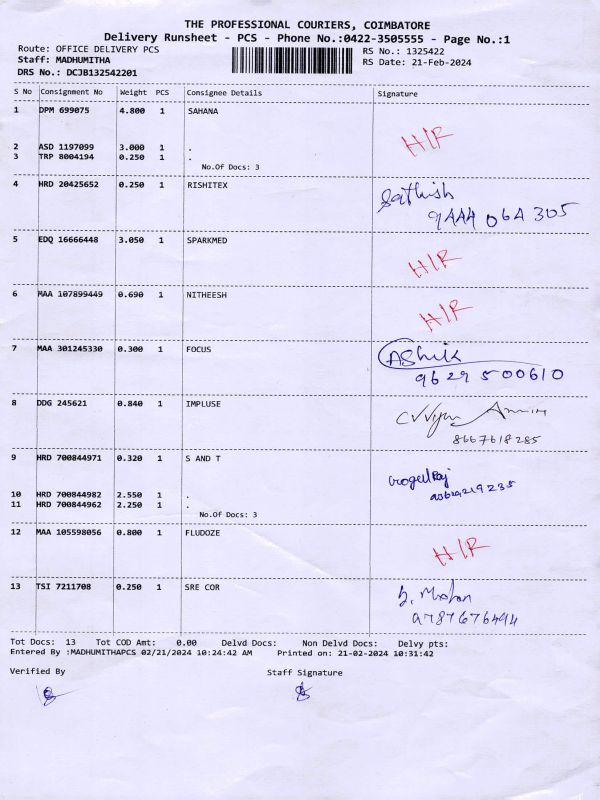 THE PROFESSIONAL COURIERS, COIMBATORE
Delivery Runsheet - PCS - Phone No.:0422-3505555 - Page No.:1
Route: OFFICE DELIVERY PCS RS No.: 1325422
Staff: MADHUMITHA RS Date: 21-Feb-2024
DRS No.: DCJB132542201
S No Consignment No Weight PCS Consignee Details Signature
1 DPM 699075 4.800 1 SAHANA
H/R
2 ASD 1197099 3.000 1 .
3 TRP 8004194 0.250 1 .
No.Of Docs: 3
4 HRD 20425652 0.250 1 RISHITEX Sathish
9444 064 305
5 EDQ 16666448 3.050 1 SPARKMED
H/R
6 MAA 107899449 0.690 1 NITHEESH
H/R
7 MAA 301245330 0.300 1 FOCUS Ashik
9629500610
8 DDG 245621 0.840 1 IMPLUSE
8667618285
9 HRD 700844971 0.320 1 S AND T
10 HRD 700844982 2.550 1 .
11 HRD 700844962 2.250 1 .
No.Of Docs: 3
12 MAA 105598056 0.800 1 FLUDOZE
H/R
13 TSI 7211708 0.250 1 SRE COR
9787676494
Tot Docs: 13 Tot COD Amt: 0.00 Delvd Docs: Non Delvd Docs: Delvy pts:
Entered By :MADHUMITHAPCS 02/21/2024 10:24:42 AM Printed on: 21-02-2024 10:31:42
Verified By Staff Signature